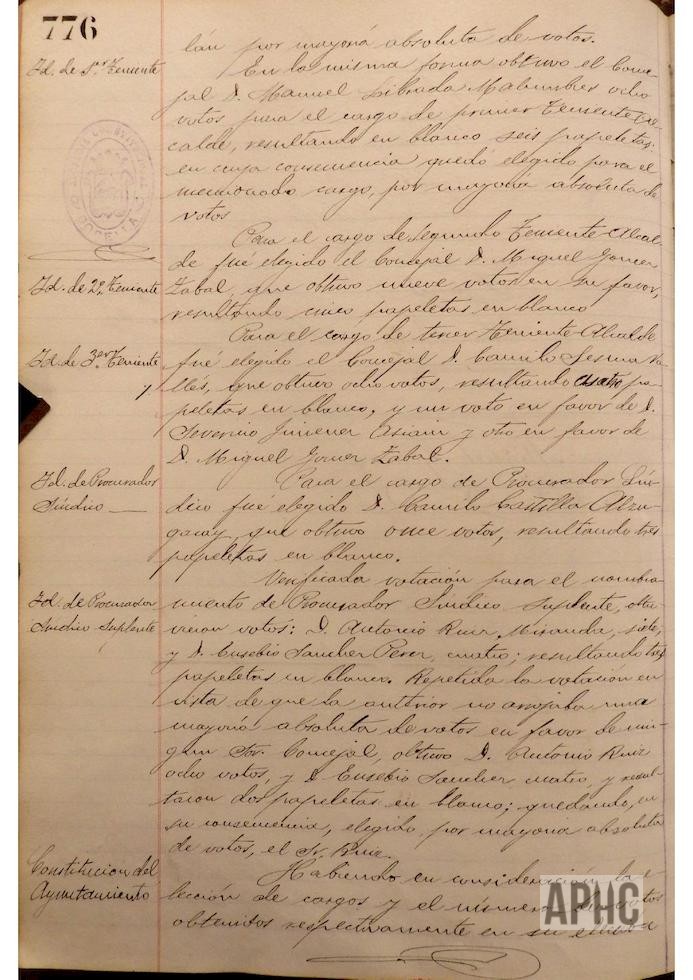 776
lán por mayoría absoluta de votos.
Id. de 1er Teniente
En la misma forma obtuvo el Conce-
jal D. Manuel Librada Malumbres ocho
votos para el cargo de primer Teniente Al-
calde, resultando en blanco seis papeletas;
en cuya consecuencia quedó elegido para el
mencionado cargo, por mayoría absoluta de
votos
Para el cargo de Segundo Teniente Alcal-
de fué elegido el Concejal D. Miguel Gomez
Id. de 2º Teniente
Zabal, que obtuvo nueve votos en su favor,
resultando cinco papeletas en blanco
Para el cargo de tercer Teniente Alcalde
Id. de 3er Teniente
fué elegido el Concejal D. Camilo Sesma Va-
lles, que obtuvo ocho votos, resultando cuatro pa-
peletas en blanco, y un voto en favor de D.
Severino Jimenez Asiain y otro en favor de
D. Miguel Gomez Zabal.
Id. de Procurador
Síndico
Para el cargo de Procurador Sín-
dico fué elegido D. Camilo Castilla Alzu-
garay, que obtuvo once votos, resultando tres
papeletas en blanco.
Verificada votación para el nombra-
Id. de Procurador
Síndico Suplente
miento de Procurador Síndico Suplente, obtu-
vieron votos: D. Antonio Ruiz Miranda, siete,
y D. Eusebio Sanchez Perez, cuatro; resultando tres
papeletas en blanco. Repetida la votación en
vista de que la anterior no arrojaba una
mayoría absoluta de votos en favor de nin-
gun Sor. Concejal, obtuvo D. Antonio Ruiz
ocho votos, y D. Eusebio Sanchez cuatro, y resul-
taron dos papeletas en blanco; quedando, en
su consecuencia, elegido, por mayoria absoluta
de votos, el Sr. Ruiz.
Constitucion del
Ayuntamiento
Habiendo en consideración la e-
lección de cargos y el número de votos
obtenidos respectivamente en su
APHC